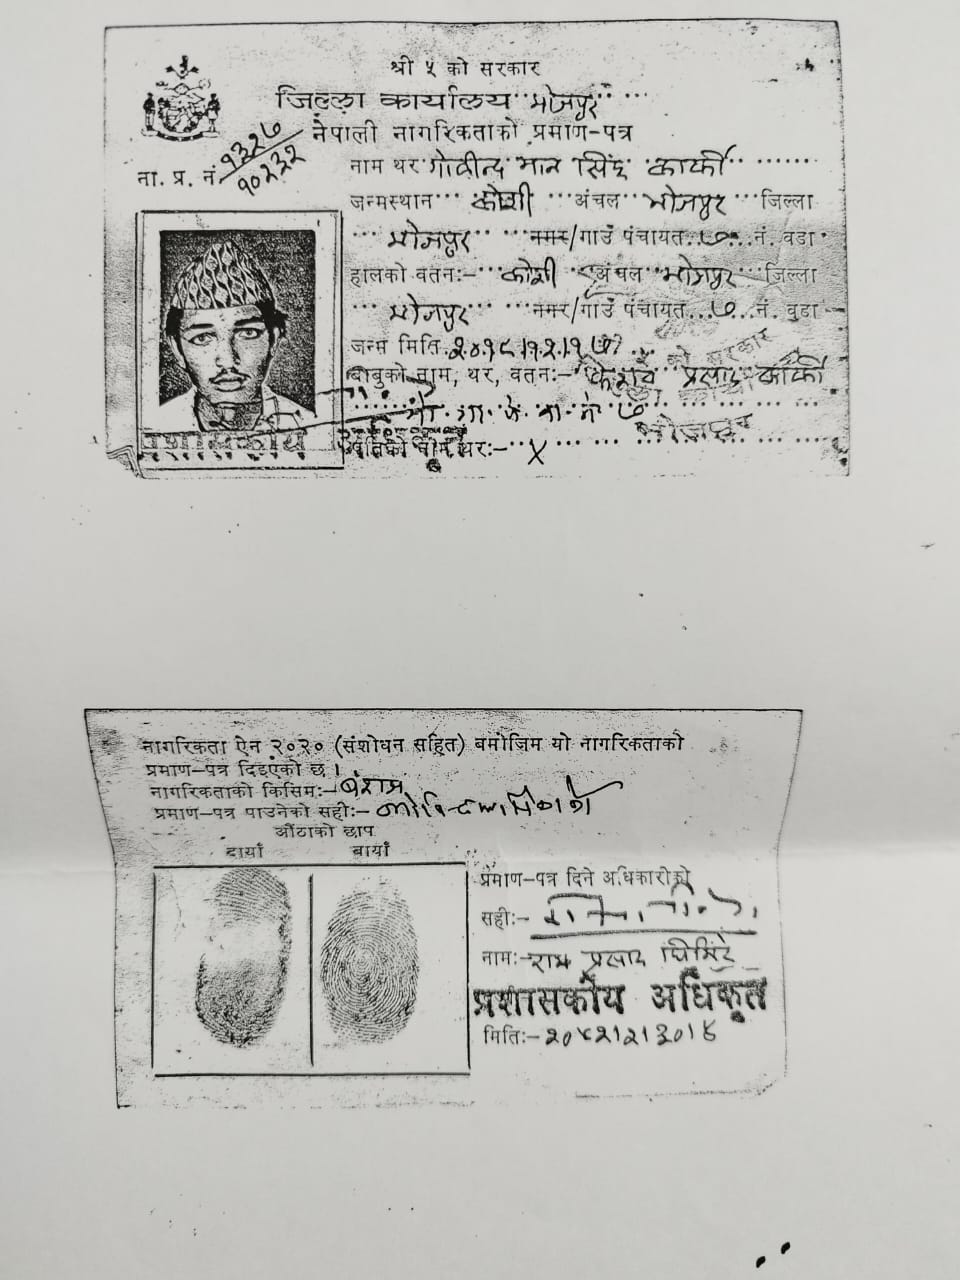 श्री ५ को सरकार
जिल्ला कार्यालय भोजपुर
नेपाली नागरिकताको प्रमाण-पत्र
ना. प्र. नं. १३२७/१०२३२
नाम थर गोविन्द मान सिंह कार्की
जन्मस्थान कोशी अंचल भोजपुर जिल्ला
भोजपुर नगर/गाउँ पंचायत ७ नं. वडा
हालको वतनः- कोशी अंचल भोजपुर जिल्ला
भोजपुर नगर/गाउँ पंचायत ७ नं. वडा
जन्म मिति
बाबुको नाम, थर, वतनः- केशव प्रसाद कार्की
भोजपुर
प्रशासकीय
पतिको नाम थरः- X
नागरिकता ऐन २०२० (संशोधन सहित) बमोजिम यो नागरिकताको
प्रमाण-पत्र दिइएको छ ।
नागरिकताको किसिमः- बंशज
प्रमाण-पत्र पाउनेको सहीः-
औंठाको छाप
दायाँ बायाँ
प्रमाण-पत्र दिने अधिकारीको
सहीः-
नामः- राम प्रसाद घिमिरे
प्रशासकीय अधिकृत
मितिः-